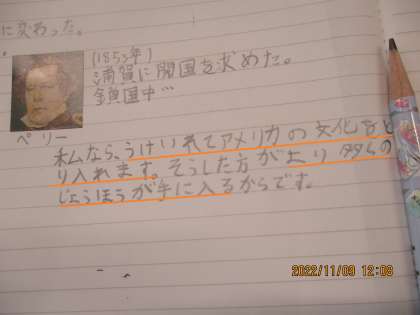 に変わった。
(1853年)
浦賀に開国を求めた。
鎖国中…
ペリー
私なら、うけいれてアメリカの文化をと
り入れます。そうした方がより多くの
じょうほうが手に入るからです。
2022/11/09 12:08